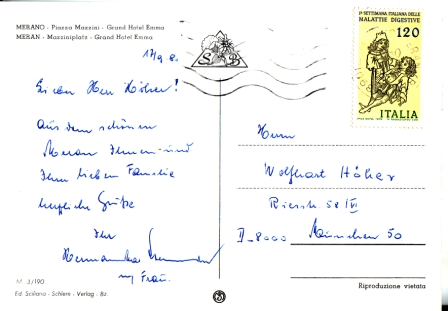 MERANO - Piazza Mazzini - Grand Hotel Emma
MERAN - Mazziniplatz - Grand Hotel Emma
S B
Iª SETTIMANA ITALIANA DELLE
MALATTIE DIGESTIVE
120
ITALIA
Lieber Herr Höher!
Aus dem schönen
Meran Ihnen und
Ihrer lieben Familie
herzliche Grüße
Ihr
u. Frau.
Herrn
Wolfhart Höher
58/VI
D-8000 München 50
M. 3/190
Ed. Sciliano - Schlern - Verlag - Bz.
Riproduzione vietata